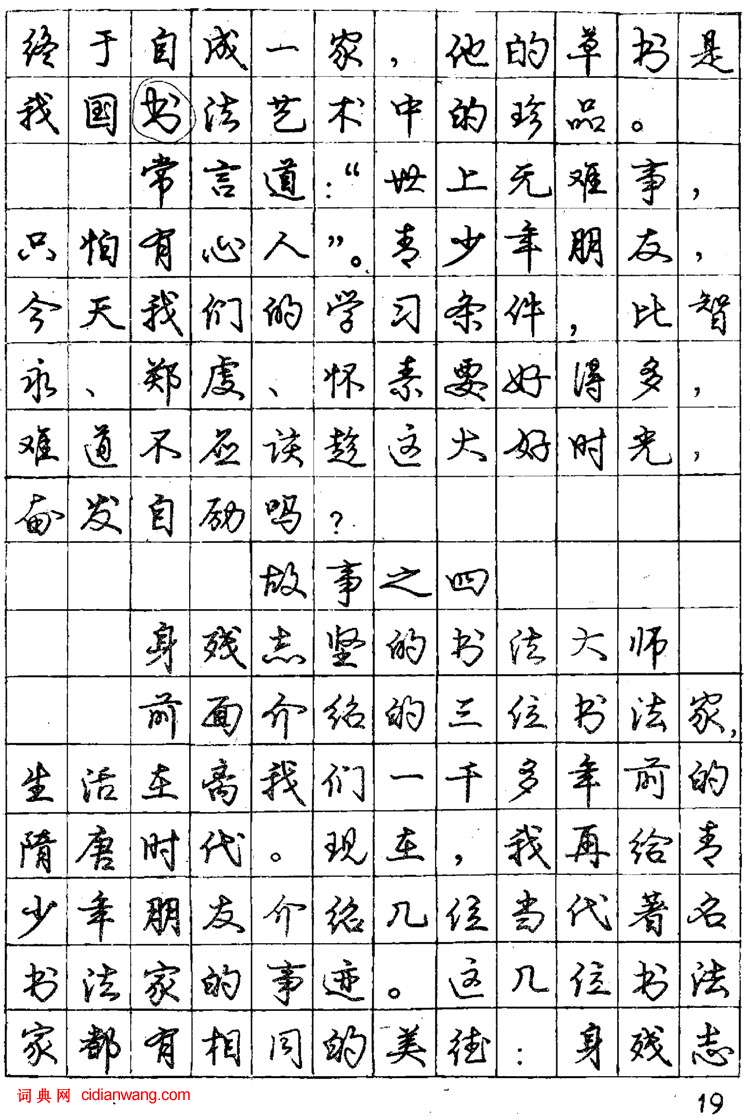 终于自成一家，他的草书是
我国书法艺术中的珍品。
常言道：“世上无难事，
只怕有心人”。青少年朋友，
今天我们的学习条件，比智
永、郑虔、怀素要好得多，
难道不应该趁这大好时光，
奋发自励吗？
故事之四
身残志坚的书法大师
前面介绍的三位书法家，
生活在离我们一千多年前的
隋唐时代。现在，我再给青
少年朋友介绍几位当代著名
书法家的事迹。这几位书法
家都有相同的美德：身残志
词典网 cidianwang.com
19